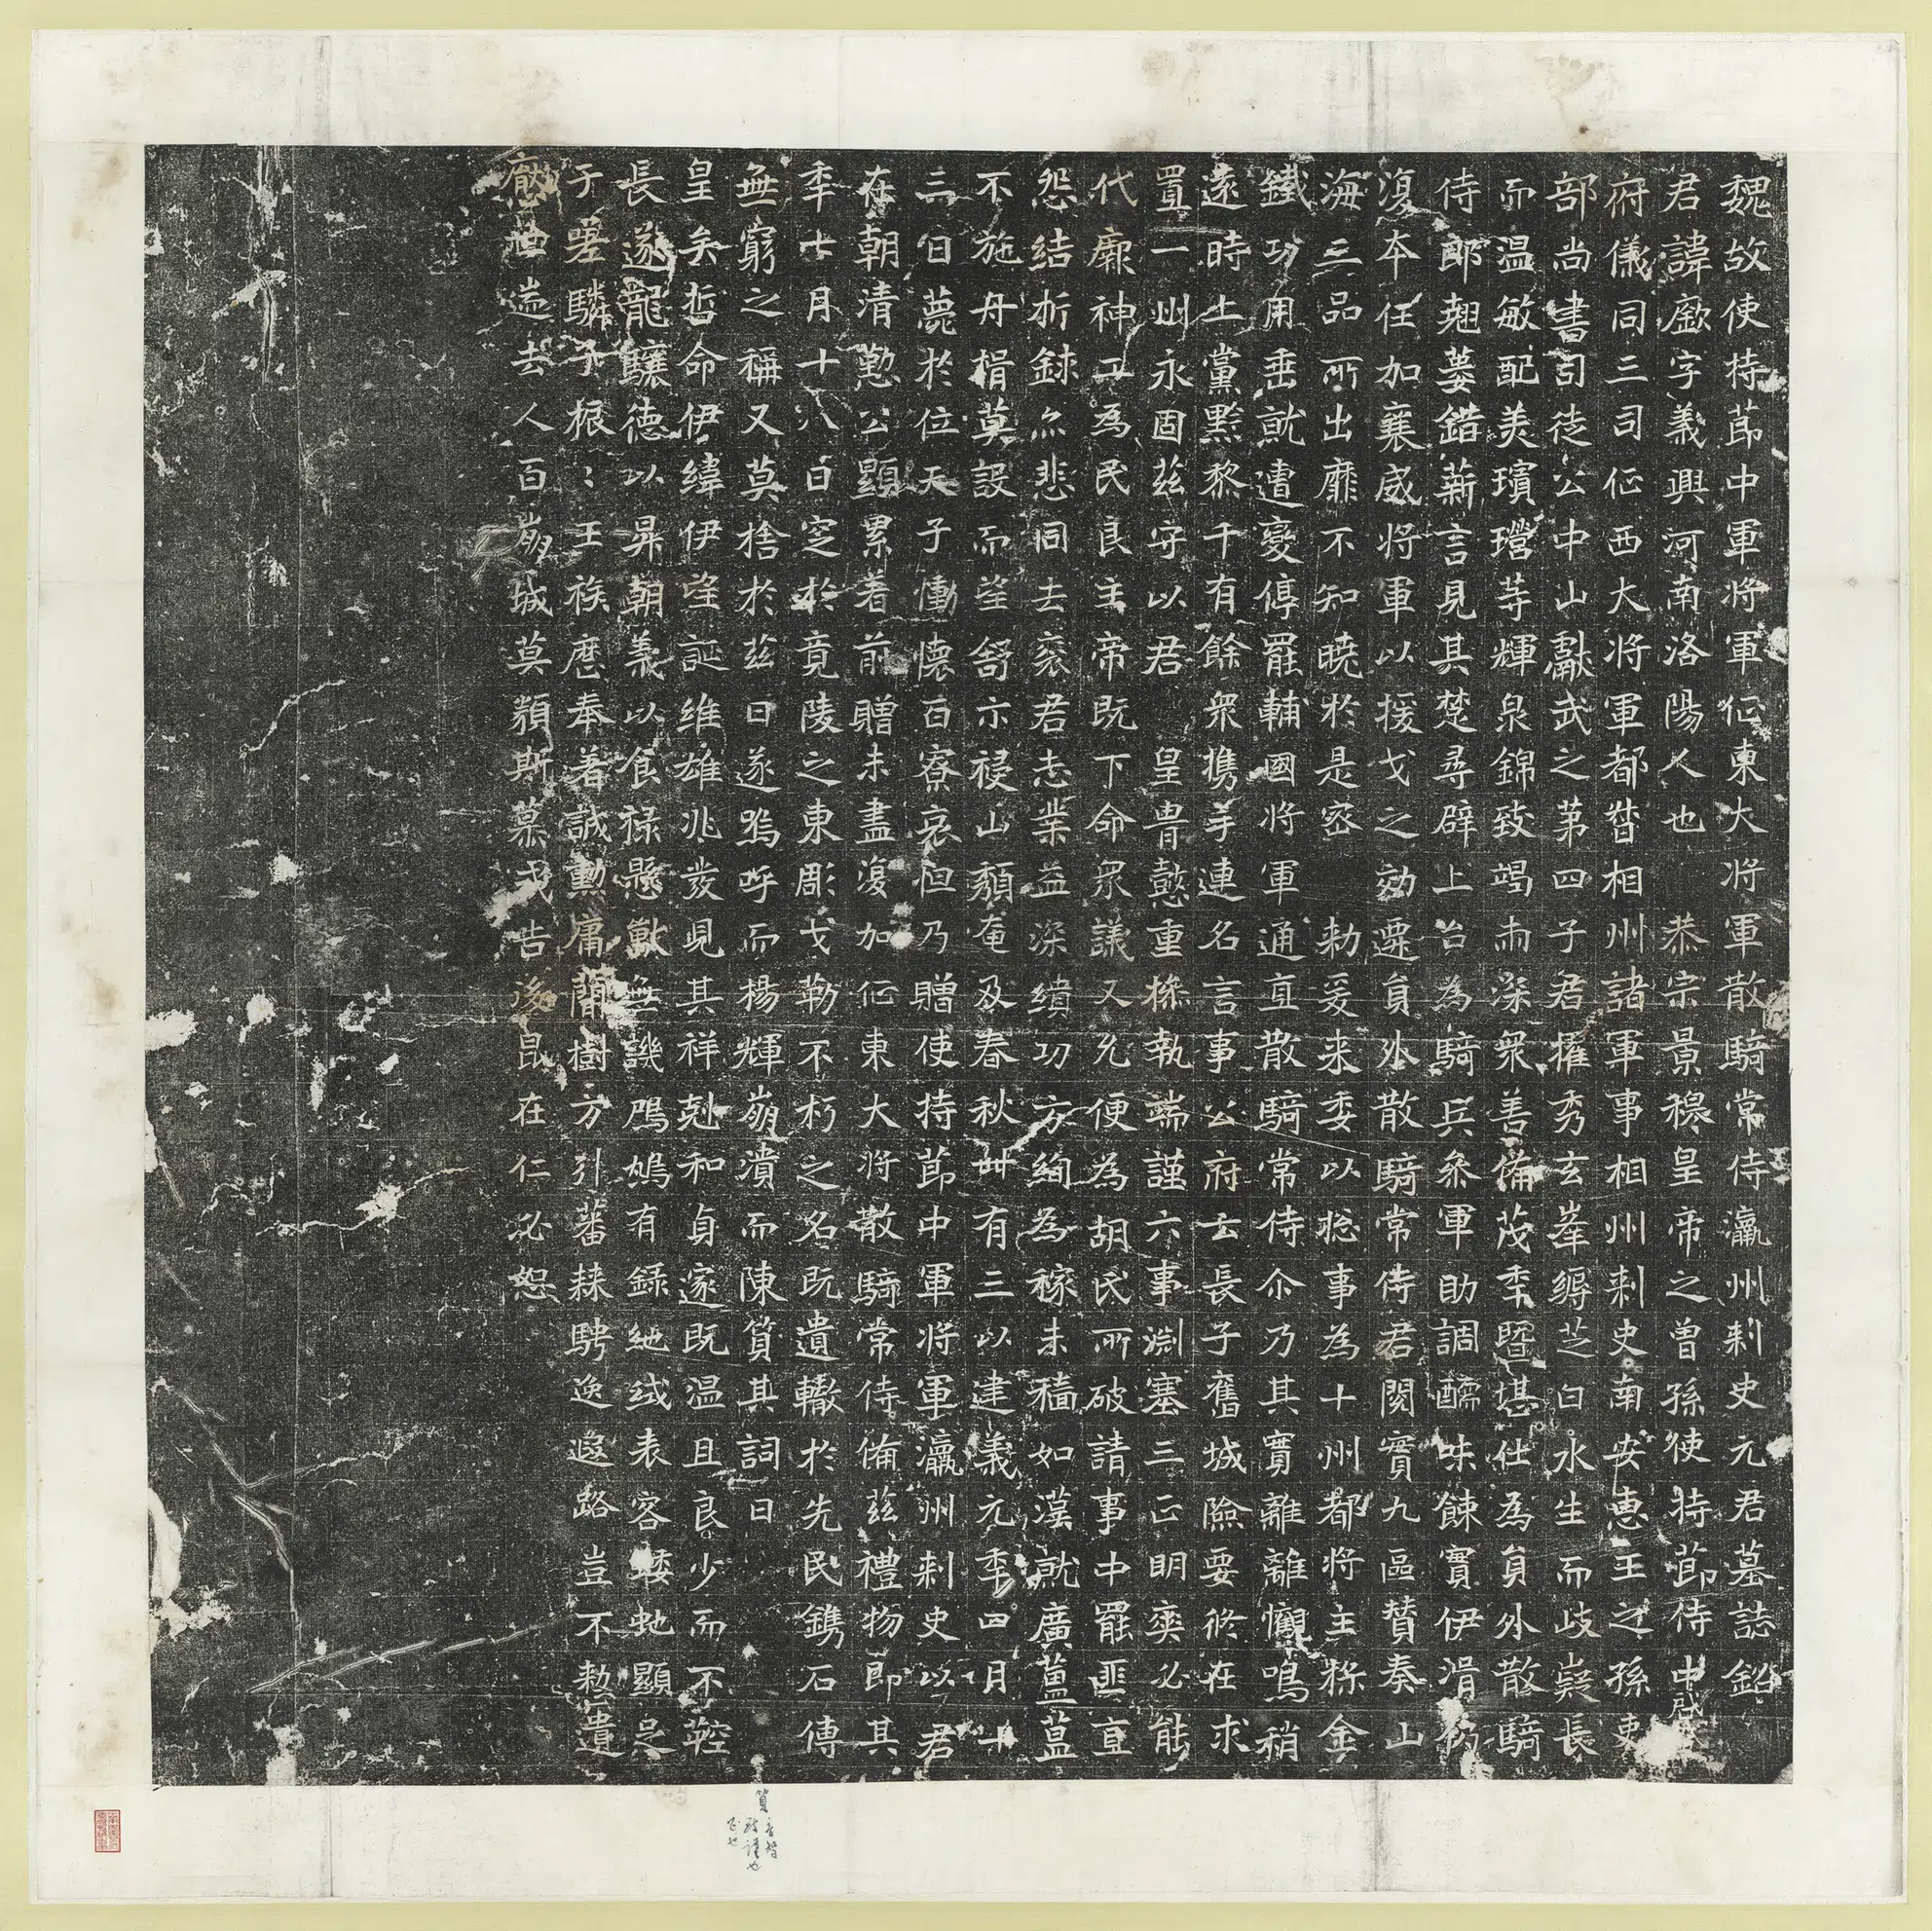 魏故使持節中軍將軍征東大將軍散騎常侍瀛州刺史元君墓誌銘
君諱廞字義興河南洛陽人也恭宗景穆皇帝之曾孫使持節侍中
府儀同三司征西大將軍都督相州諸軍事相州刺史南安惠王之孫吏
部尚書司徒公中山獻武之第四子君擢秀玄峯縟芝白水生而岐嶷長
而温敏配美璸瑩等輝泉錦致竭南深衆善備茂秊暨堪仕為員外散騎
侍郎翹蔞錯薪言見其楚尋辟上台為騎兵叅軍助調醹味餗實伊涓
復本任加襄威將軍以援戈之効遷員外散騎常侍君閱實九區賛奏山
海三品所出靡不知曉於是密勅爰来委以捴事為十州都將主採金
鐵功用垂就遭憂停罷輔國將軍通直散騎常侍尒乃其實離離懽鳴稍
遠時土黨黔黎千有餘衆携手連名言事公府云長子舊城險要修在求
置一州永固兹守以君皇胄懿重操執端謹六事淵塞三正明奭必能
代廱神工為民良主帝既下命衆議又允便為胡氏所破請事中罷匪直
怨結析錸亦悲同去衮君志業益深績功方絢為稼未穡如漢就廣薑葍
不施舟楫莫設而望舒亦祲山頹奄及春秋卌有三以建義元秊四月十
三日薨於位天子慟懷百寮哀怛乃贈使持節中軍將軍瀛州刺史以君
在朝清懃公顯累着前贈未盡復加征東大將散騎常侍備兹禮物即其
秊七月十八日窆於竟陵之東彫戈勒不朽之名既遺轍於先民鐫石傳
無窮之稱又莫捨於兹日遂嗚呼而楊輝崩潰而陳簤其詞曰
皇矣哲命伊緯伊望誕維雄兆發見其祥剋和貞遂既温且良少而不羫
長遂龍驤德以昇朝義以食禄懸獸無譏鳲鳩有録絁絨表容蝼虵顯足
于嗟驎子根〻王族鹿奉著誠勳庸閒樹方引蕃隸騁逸遐路豈不勑遺
廞世遄去人百崩城莫頹斯慕我告後昆在仁必恕
簤